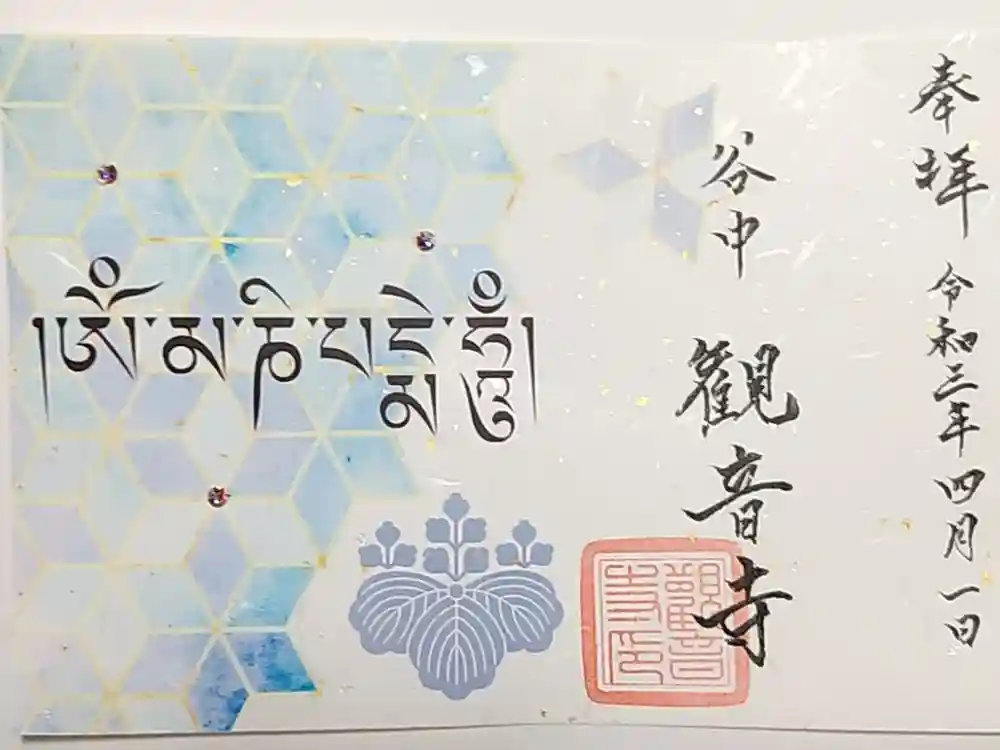 奉拝 令和三年四月一日
谷中 観音寺
觀音
寺印
།ཨོཾ་མ་ཎི་པདྨེ་ཧཱུྃ།